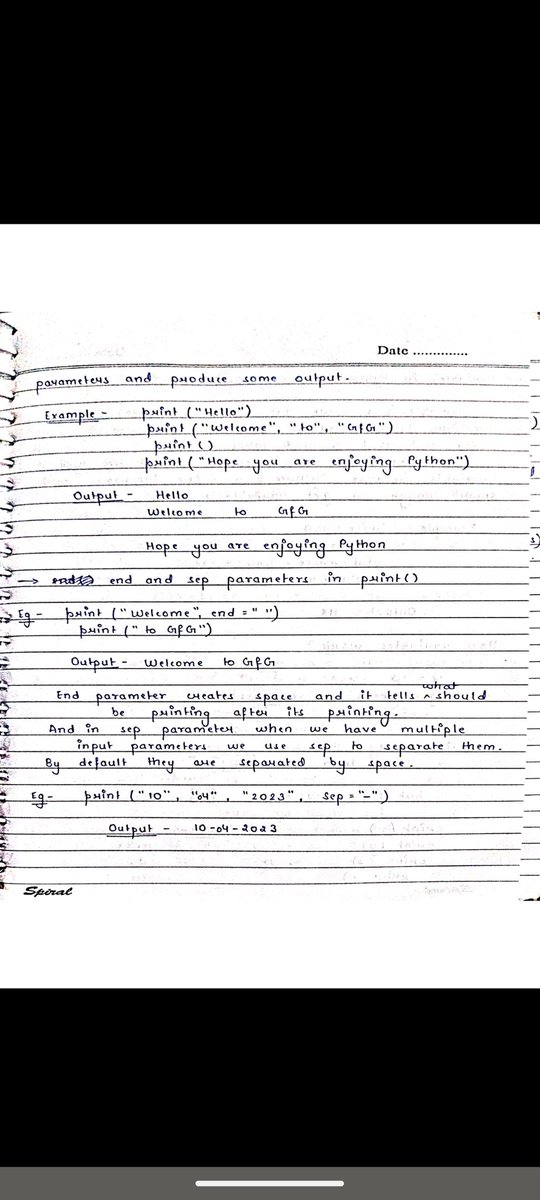 Date ..............
parameters and produce some output.
Example - print ("Hello")
print ("Welcome", "to", "GfG")
print ()
print ("Hope you are enjoying Python")
Output - Hello
Welcome to GfG
Hope you are enjoying Python
→ end and sep parameters in print()
Eg - print ("Welcome", end = " ")
print (" to GfG")
Output - Welcome to GfG
End parameter creates space and it tells ^what should
be printing after its printing.
And in sep parameter when we have multiple
input parameters we use sep to separate them.
By default they are separated by space.
Eg - print ("10", "04", "2023", sep = "-")
Output - 10-04-2023
Spiral